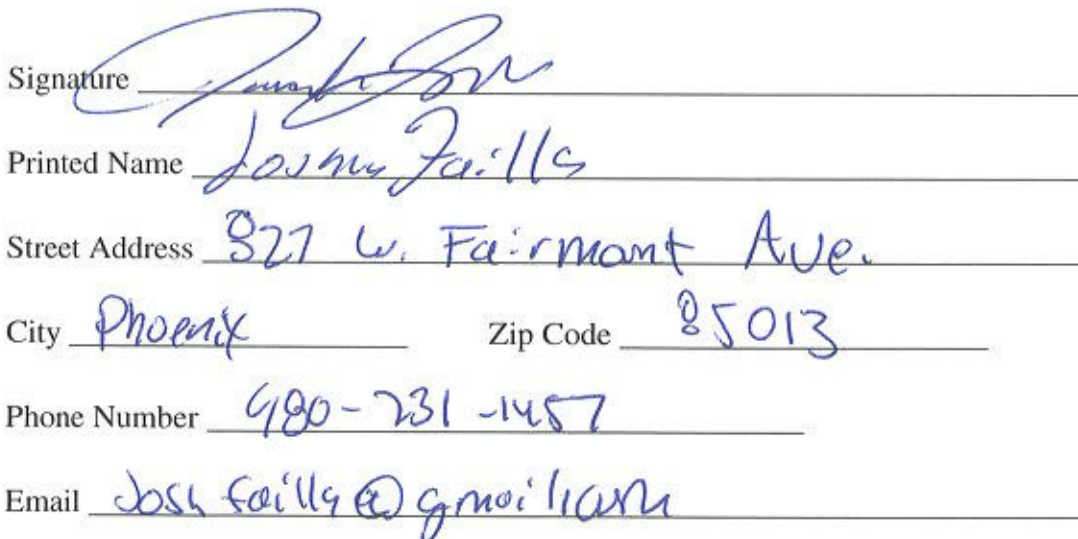 Signature
Printed Name Joshua Failla
Street Address 827 W. Fairmont Ave.
City Phoenix Zip Code 85013
Phone Number 480-231-1457
Email Joshfailla@gmail.com